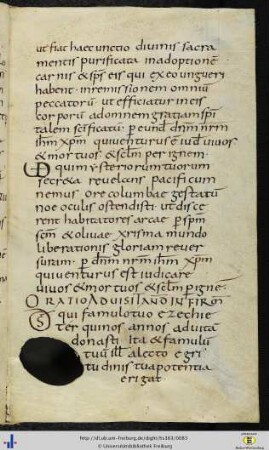 ut fiat haec unctio divinis sacra
mentis purificata inadoptione
carnis & sps eis qui exeo ungueri
habent inremissionem omniū
peccatorū ut efficiatur in eis
cor purū adomnem gratiam spi
talem scificatū p eund dnm nrm
ihm xpm qui venturus ē iud vivos
& mortuos & sclm per ignem
D qui mysteriorum tuorum
secreta revelans pacificum
nemus ore columbae gestatū
noe oculis ostendisti ut disce
rent habitatores arcae p spm
scm & olivae xrisma mundo
liberationis gloriam rever
suram p dnm nrm ihm xpm
qui venturus est iudicare
vivos & mortuos & sclm p igne
ORATIO AD VISITANDŪ INFIRM
DS qui famulo tuo ezechie
ter quinos annos ad vita
donasti Ita & famulū
tuū ill a lecto egri
tudinis tua potentia
erigat
http://dl.ub.uni-freiburg.de/diglit/hs363/0083
© Universitätsbibliothek Freiburg